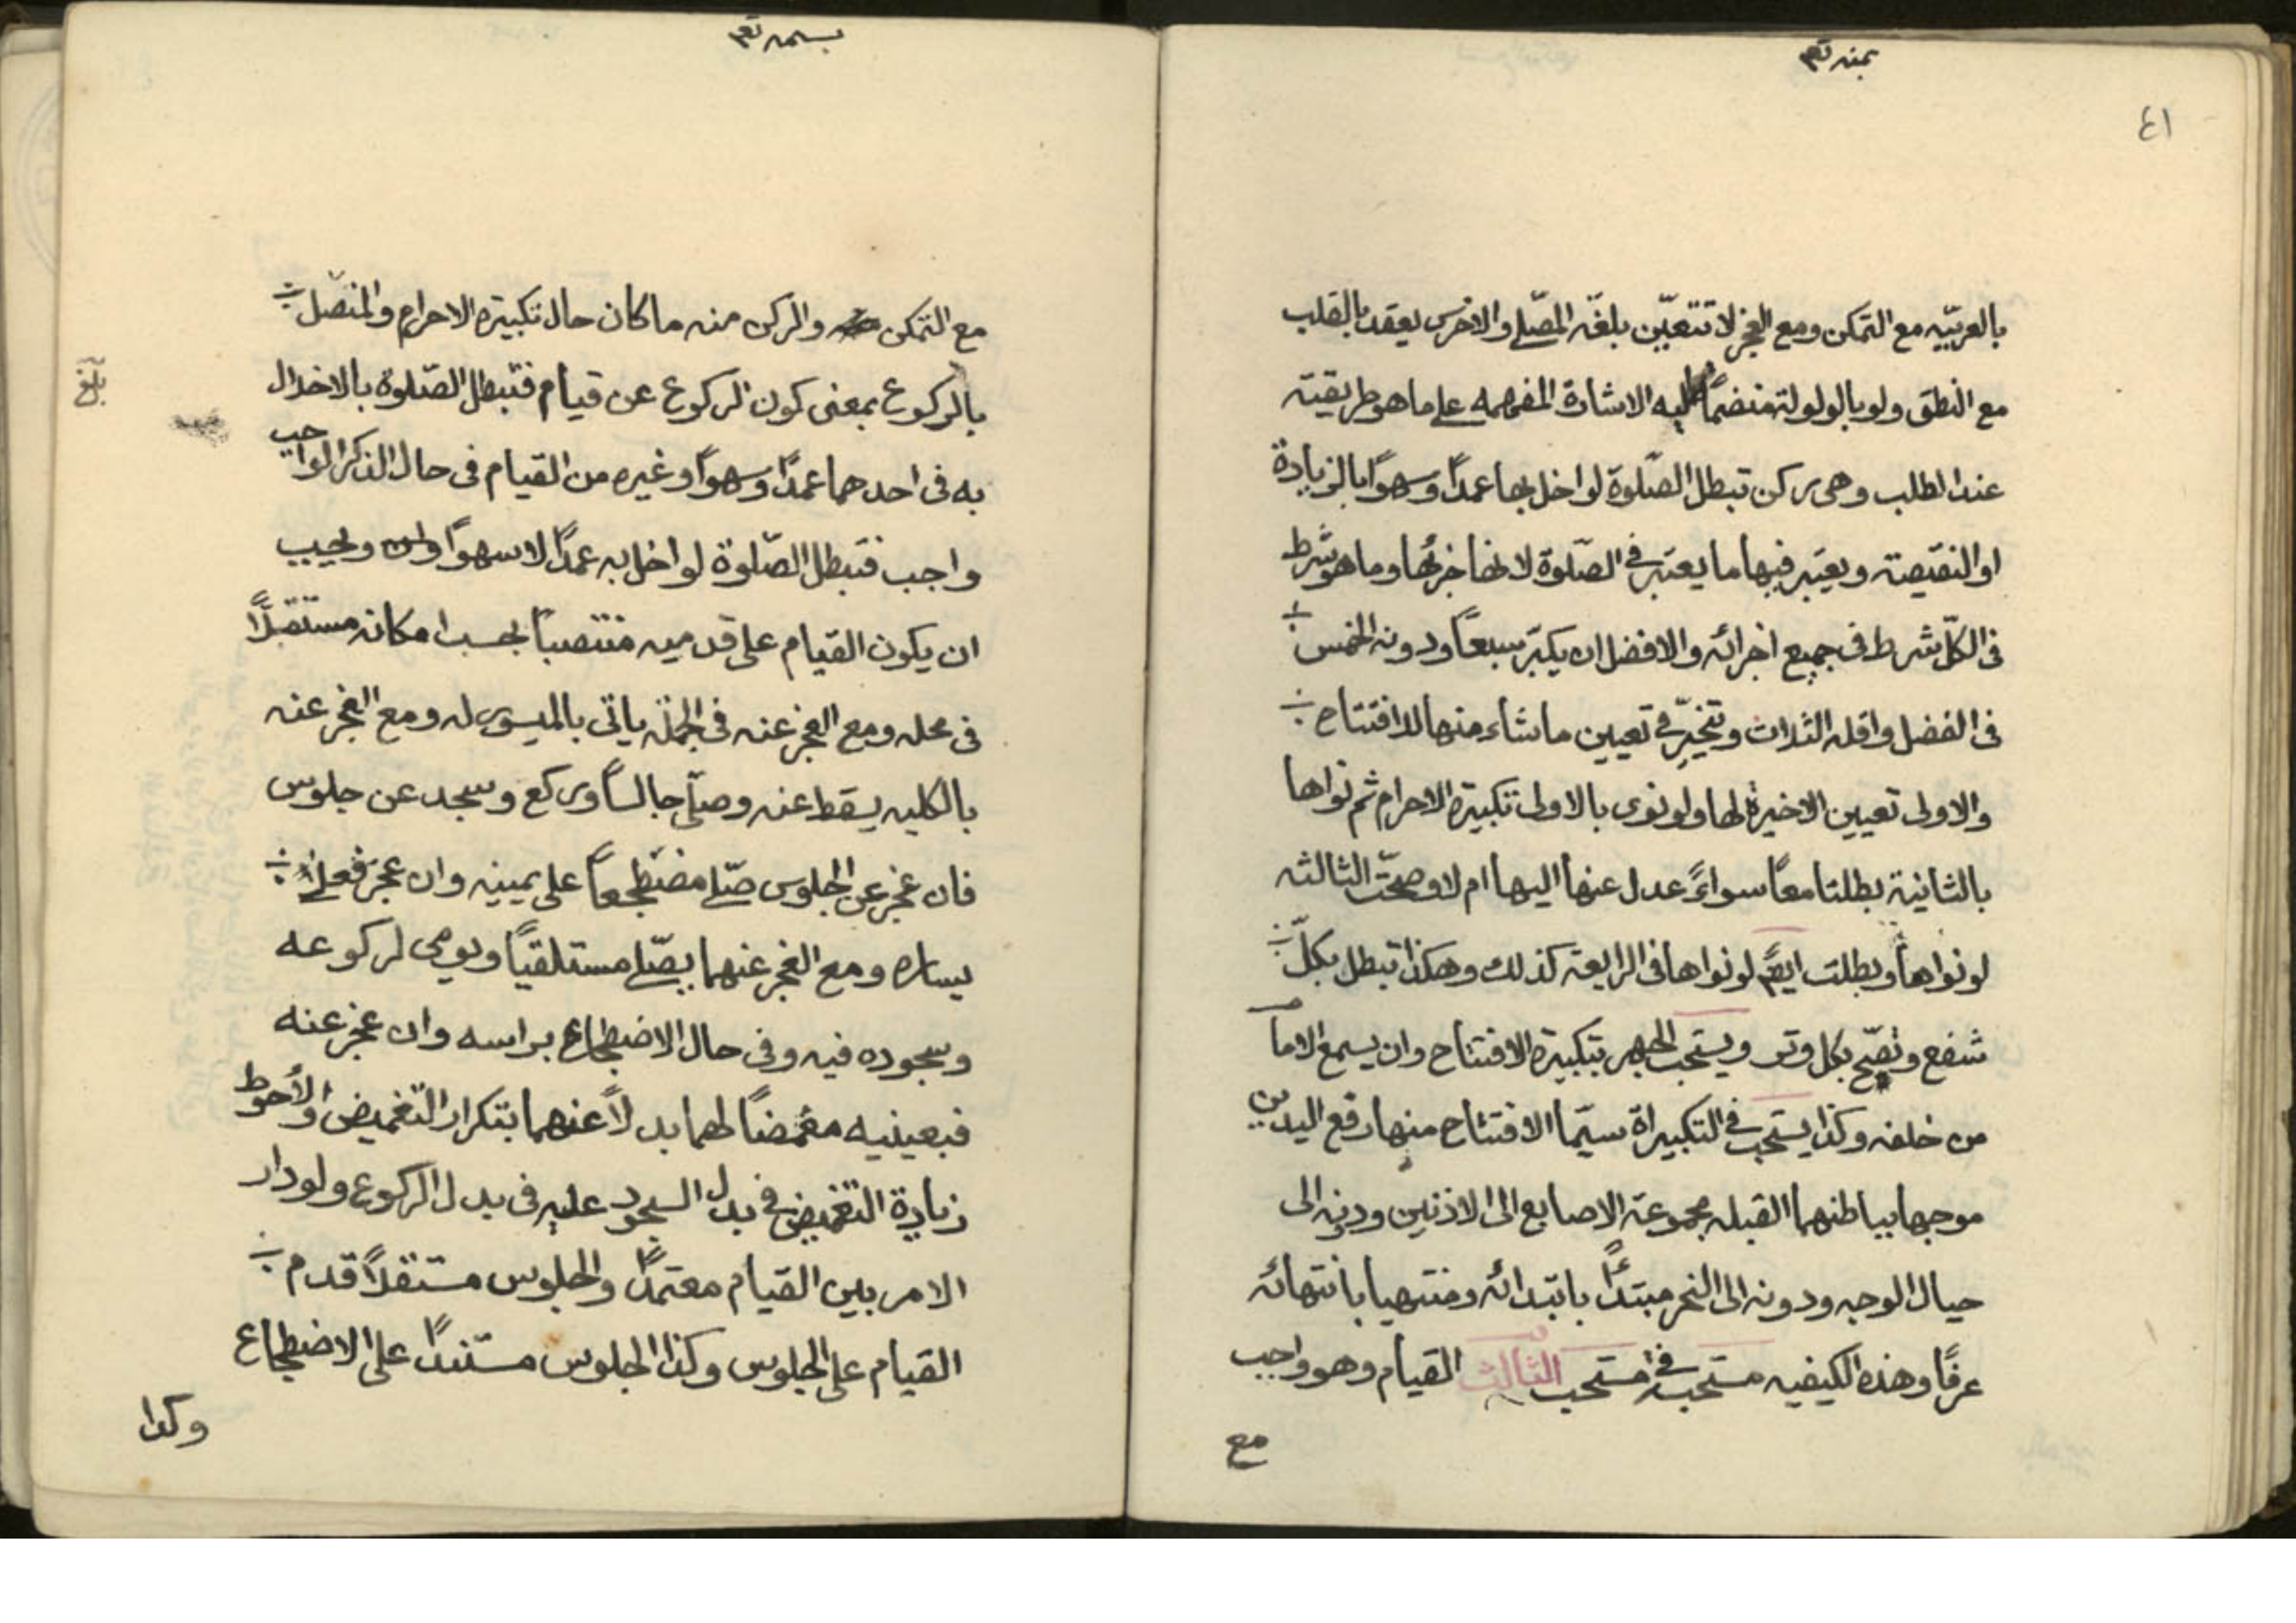 بمنه تعم
٤١
بالعربيّه مع التمكن ومع العجز لا تتعيّن بلغة المصّلي والاخرس يعقد بالقلب
مع النطق ولو بالولولة منضمّا اليه الاشارة المفهمه على ما هو طريقيته
عند الطلب وهي ركن تبطل الصّلوة لو اخل بها عمدًا وسهوًا بالزيادة
او النقيصته ويعتبر فيها ما يعتبر في الصّلوة لانها جزئها وما هو شرط
في الكلّ شرط في جميع اجزائه والافضل ان يكبّر سبعًا ودونه الخمس
في الفضل واقله الثلاث وتخيّر في تعيين ما شاء منها للافتتاح
والاولى تعيين الاخيرة لها ولو نوى بالاولى تكبيرة الاحرام ثم نواها
بالثانية بطلتا معًا سواءً عدل عنها اليها ام لا وصحّت الثالثه
لو نواها وبطلت ايضًا لو نواها في الرابعة كذلك وهكذا تبطل بكلّ
شفع وتصّح بكل وتر ويستحب الجهر بتكبيرة الافتتاح وان يسمع الامام
من خلفه وكذا يستحب في التكبيراة سيّما الافتتاح منها رفع اليدين
موجها بباطنهما القبله مجموعة الاصابع الى الاذنين ودونه الى
حيال الوجه ودونه الى النحر مبتدئًا بابتدائه ومنتهيا بانتهائه
عرفًا وهذه الكيفيه مستحبة في مستحب الثالث القيام وهو واجب
مع
بسمه تعم
مع التمكن والركن منه ما كان حال تكبيرة الاحرام والمتصّل
بالركوع بمعنى كون الركوع عن قيام فتبطل الصّلوة بالاخلال
به في احدهما عمدًا وسهوًا وغيره من القيام في حال الذكر الواجب
واجب فتبطل الصّلوة لو اخل به عمدًا لا سهوًا ويجب
ان يكون القيام على قدميه منتصبًا بحسب امكانه مستقبلًا
في محله ومع العجز عنه في الجملة ياتي بالميسور له ومع العجز عنه
بالكليه يسقط عنه وصلّى جالسًا وركع وسجد عن جلوس
فان عجز عن الجلوس صّلي مضطجعًا على يمينه وان عجز فعلى
يساره ومع العجز عنهما يصّلي مستلقيًا ويومي لركوعه
وسجوده فيه وفي حال الاضطجاع براسه وان عجز عنه
فبعينيه مغمضًا لهما بدلًا عنهما بتكرار التغميض والأحوط
زيادة التغميض في بدل السجود عليه في بدل الركوع ولو دار
الامر بين القيام معتمدًا والجلوس مستقلًا قدم
القيام على الجلوس وكذا الجلوس مستندًا على الاضطجاع
وكذا
بلغ